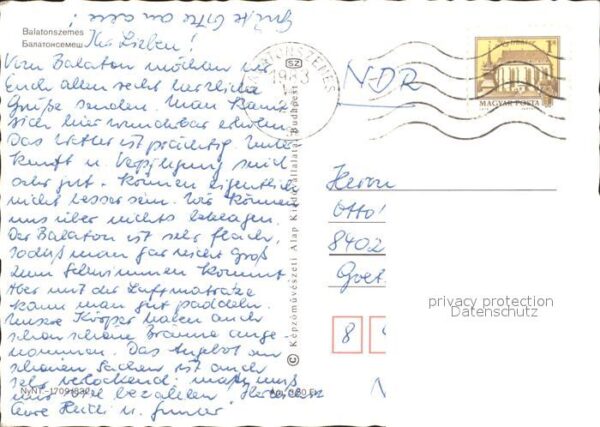 Grüße bitte an alle!
Balatonszemes
Балатонсемеш
Ihr Lieben!
Vom Balaton möchten wir
Euch allen sehr herzliche
Grüße senden. Man kann
sich hier wunderbar erholen.
Das Wetter ist prächtig Unter
kunft u. Verpflegung sind
sehr gut. Können eigentlich
nicht besser sein. Wir können
uns über nichts beklagen.
Der Balaton ist sehr flach,
sodaß man gar nicht groß
zum Schwimmen kommt
Aber mit der Luftmatratze
kann man gut paddeln.
Unsere Körper haben auch
schon schöne Bräune ange
nommen. Das Angebot an
schönen Sachen ist auch
sehr verlockend; man muß
nur viel bezahlen Herzlichst
Eure Heidi u. Gunar
NyNT.-1709/832
© Képzőművészeti Alap Kiadóvállalata, Budapest
BALATONSZEMES
SZ
NDR
1Ft
MAGYAR POSTA
Herrn
Otto
8402
8
privacy protection
Datenschutz